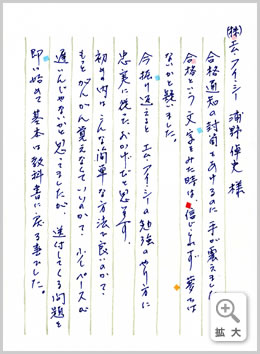 (株)エム・アイ・シー 浦野 倖史 様
合格通知の封筒をあけるのに手が震えました
合格という文字をみた時は、信じられず 夢では
ないかと疑いました。
今振り返えると エム・アイ・シーの勉強のやり方に
忠実に従ったおかげだと思います。
初めの内は こんな簡単な方法で良いのか?
もっとがんがん覚えなくていいのか? 少しペースが
遅いんじゃないかと思ってましたが、送付してくる問題を
即い始めて 基本は教科書に戻る事でした。
拡大